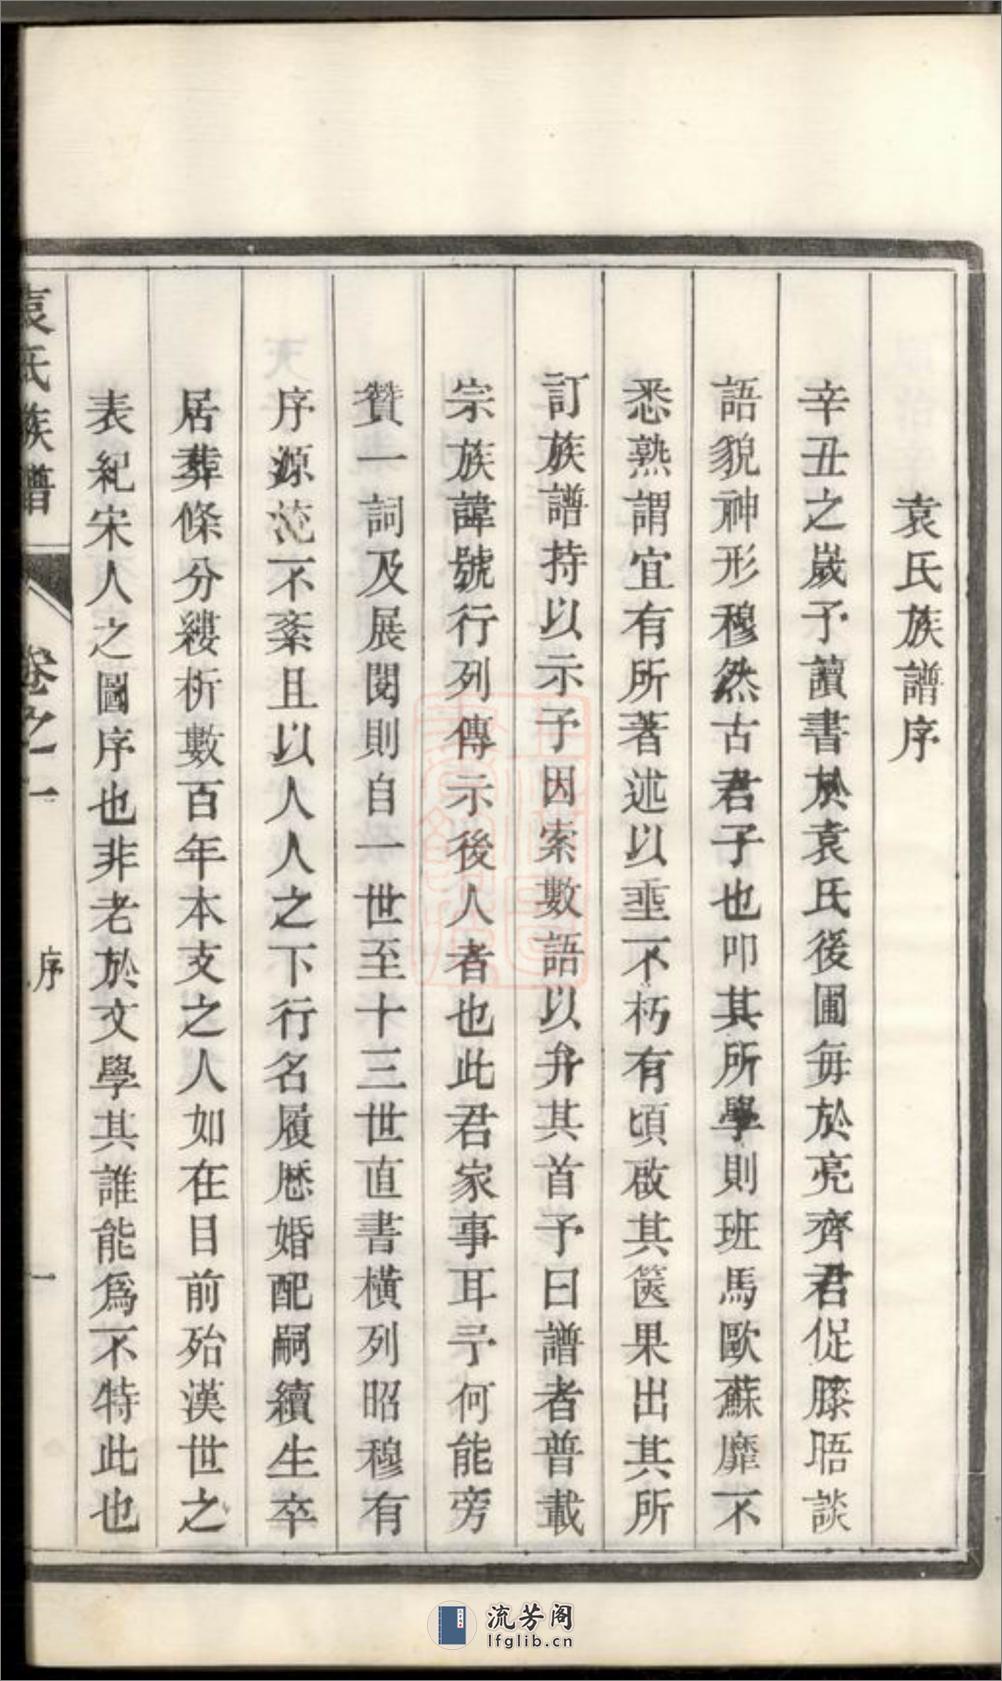 袁氏族譜序
辛丑之歲予讀書於袁氏後圃毎於亮齊君促膝晤談
語貌神形穆然古君子也叩其所學則班馬歐蘇靡不
悉熟謂宜有所著述以垂不朽有頃啟其篋果出其所
訂族譜持以示予因索數語以弁其首予曰譜者普載
宗族諱號行列傳示後人者也此君家事耳予何能旁
贊一詞及展閱則自一世至十三世直書橫列昭穆有
序源流不紊且以人人之下行名履歷婚配嗣續生卒
居葬條分縷析數百年本支之人如在目前殆漢世之
表紀宋人之圖序也非老於文學其誰能爲不特此也
袁氏族譜
卷之一
序
一
流芳阁
lfglib.cn